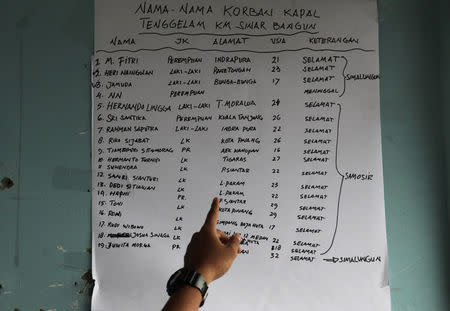 NAMA-NAMA KORBAN KAPAL
TENGGELAM KM SINAR BANGUN
NAMA JK ALAMAT USIA KETERANGAN
1. M. FITRI PEREMPUAN INDRAPURA 21 SELAMAT
2. HERI NAINGGOLAN LAKI-LAKI 23 SELAMAT
3. JAMUDA LAKI-LAKI BUNGA-BUNGA 17 SELAMAT
4. NN PEREMPUAN MENINGGAL
SIMALUNGUN
5. HERNANDO LINGGA LAKI-LAKI T. MORAWA 24 SELAMAT
6. SRI SANTIKA PEREMPUAN KUALA TANJUNG 26 SELAMAT
7. RAHMAN SAPUTRA LAKI-LAKI INDRA PURA 22 SELAMAT
8. RIKO SIJABAT LK KOTA PINANG 26 SELAMAT
9. SITUMORANG PR AEK 16 SELAMAT
10. HERMANTO LK TIGARAS 27 SELAMAT
11. SUHENDRA LK P. SIANTAR 22 SELAMAT
12. SIANTURI LK
13. DEDI LK L. PAKAM 23 SELAMAT
14. LK L. PAKAM 22 SELAMAT
15. TONI LK SIANTAR 29 SELAMAT
16. LK KOTA PINANG 29 SELAMAT
17. RUDI WIBOWO LK 17 SELAMAT
18. JOSUA SINAGA LK MEDAN 22 SELAMAT
19. JUWITA PK 32 SELAMAT
SAMOSIR
SIMALUNGUN